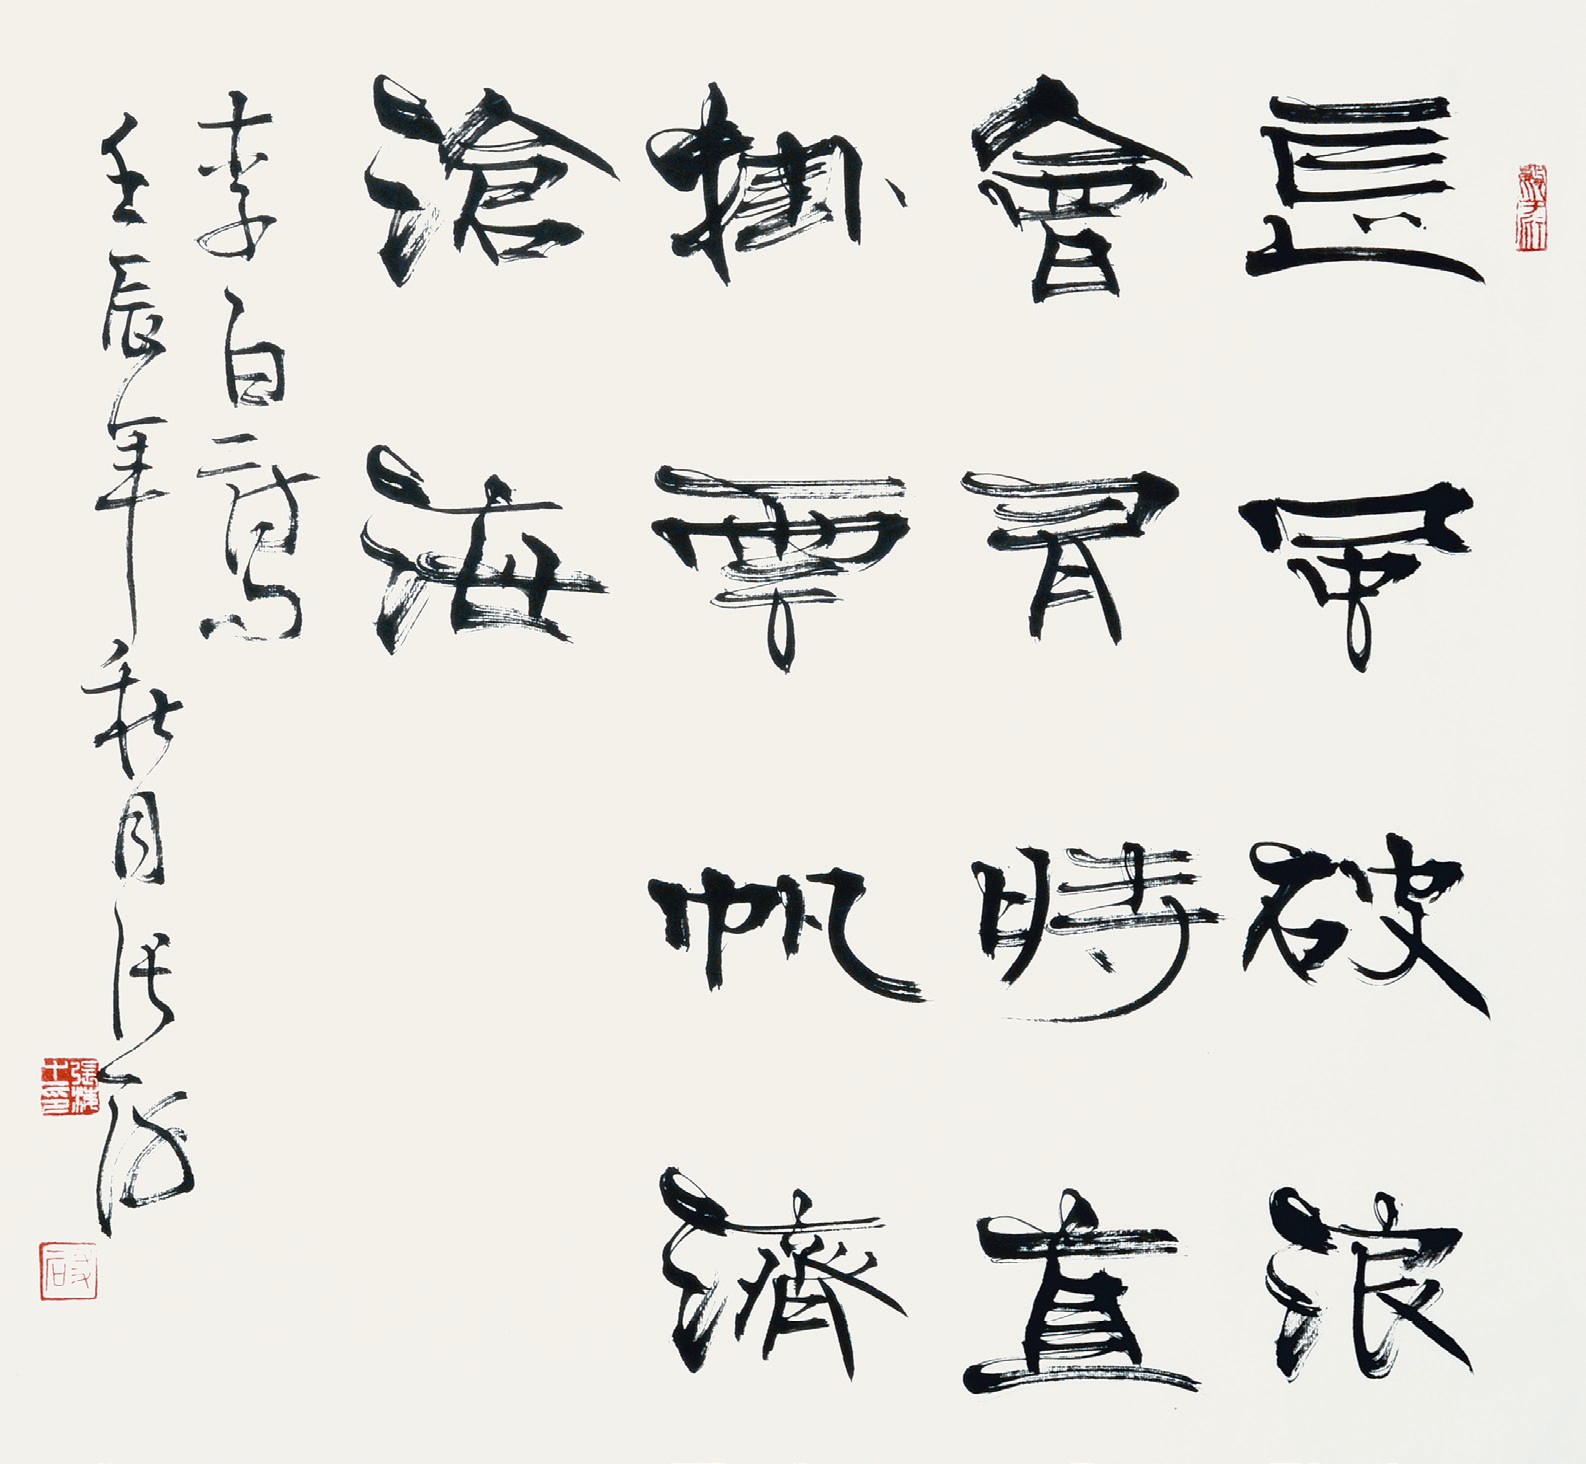 長風破浪
會有時直
掛雲帆濟
滄海
李白
壬辰年秋月張